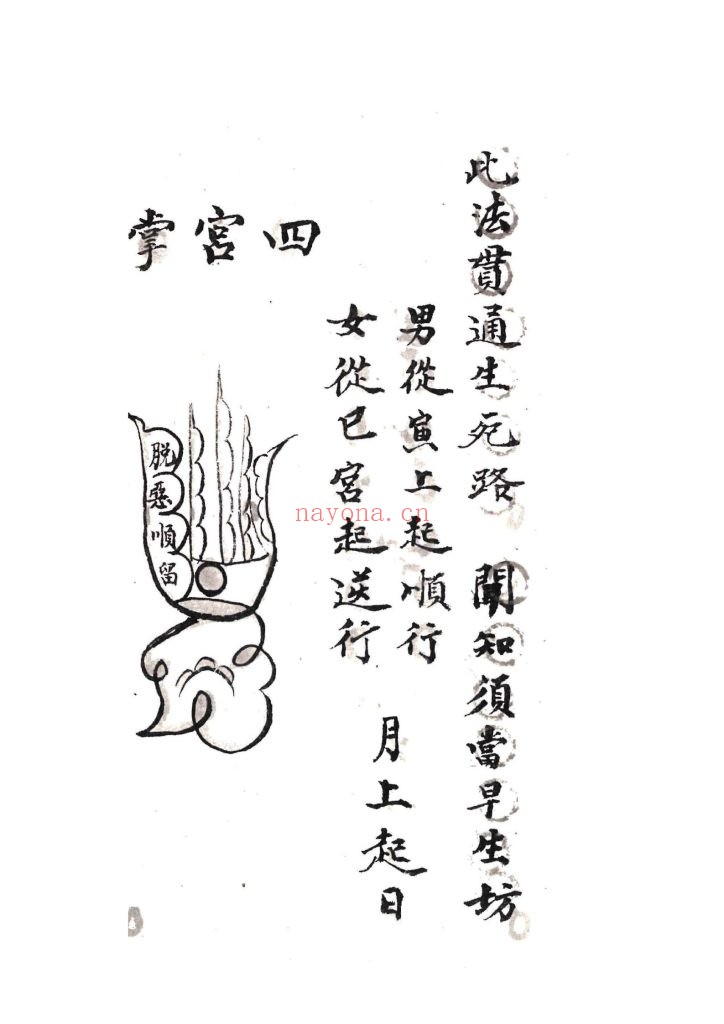 此法貫通生死路 聞知須當早生坊
男從寅上起順行
女從巳宮起送行
月上起日
四宮掌
脱惡順留
nayona.cn